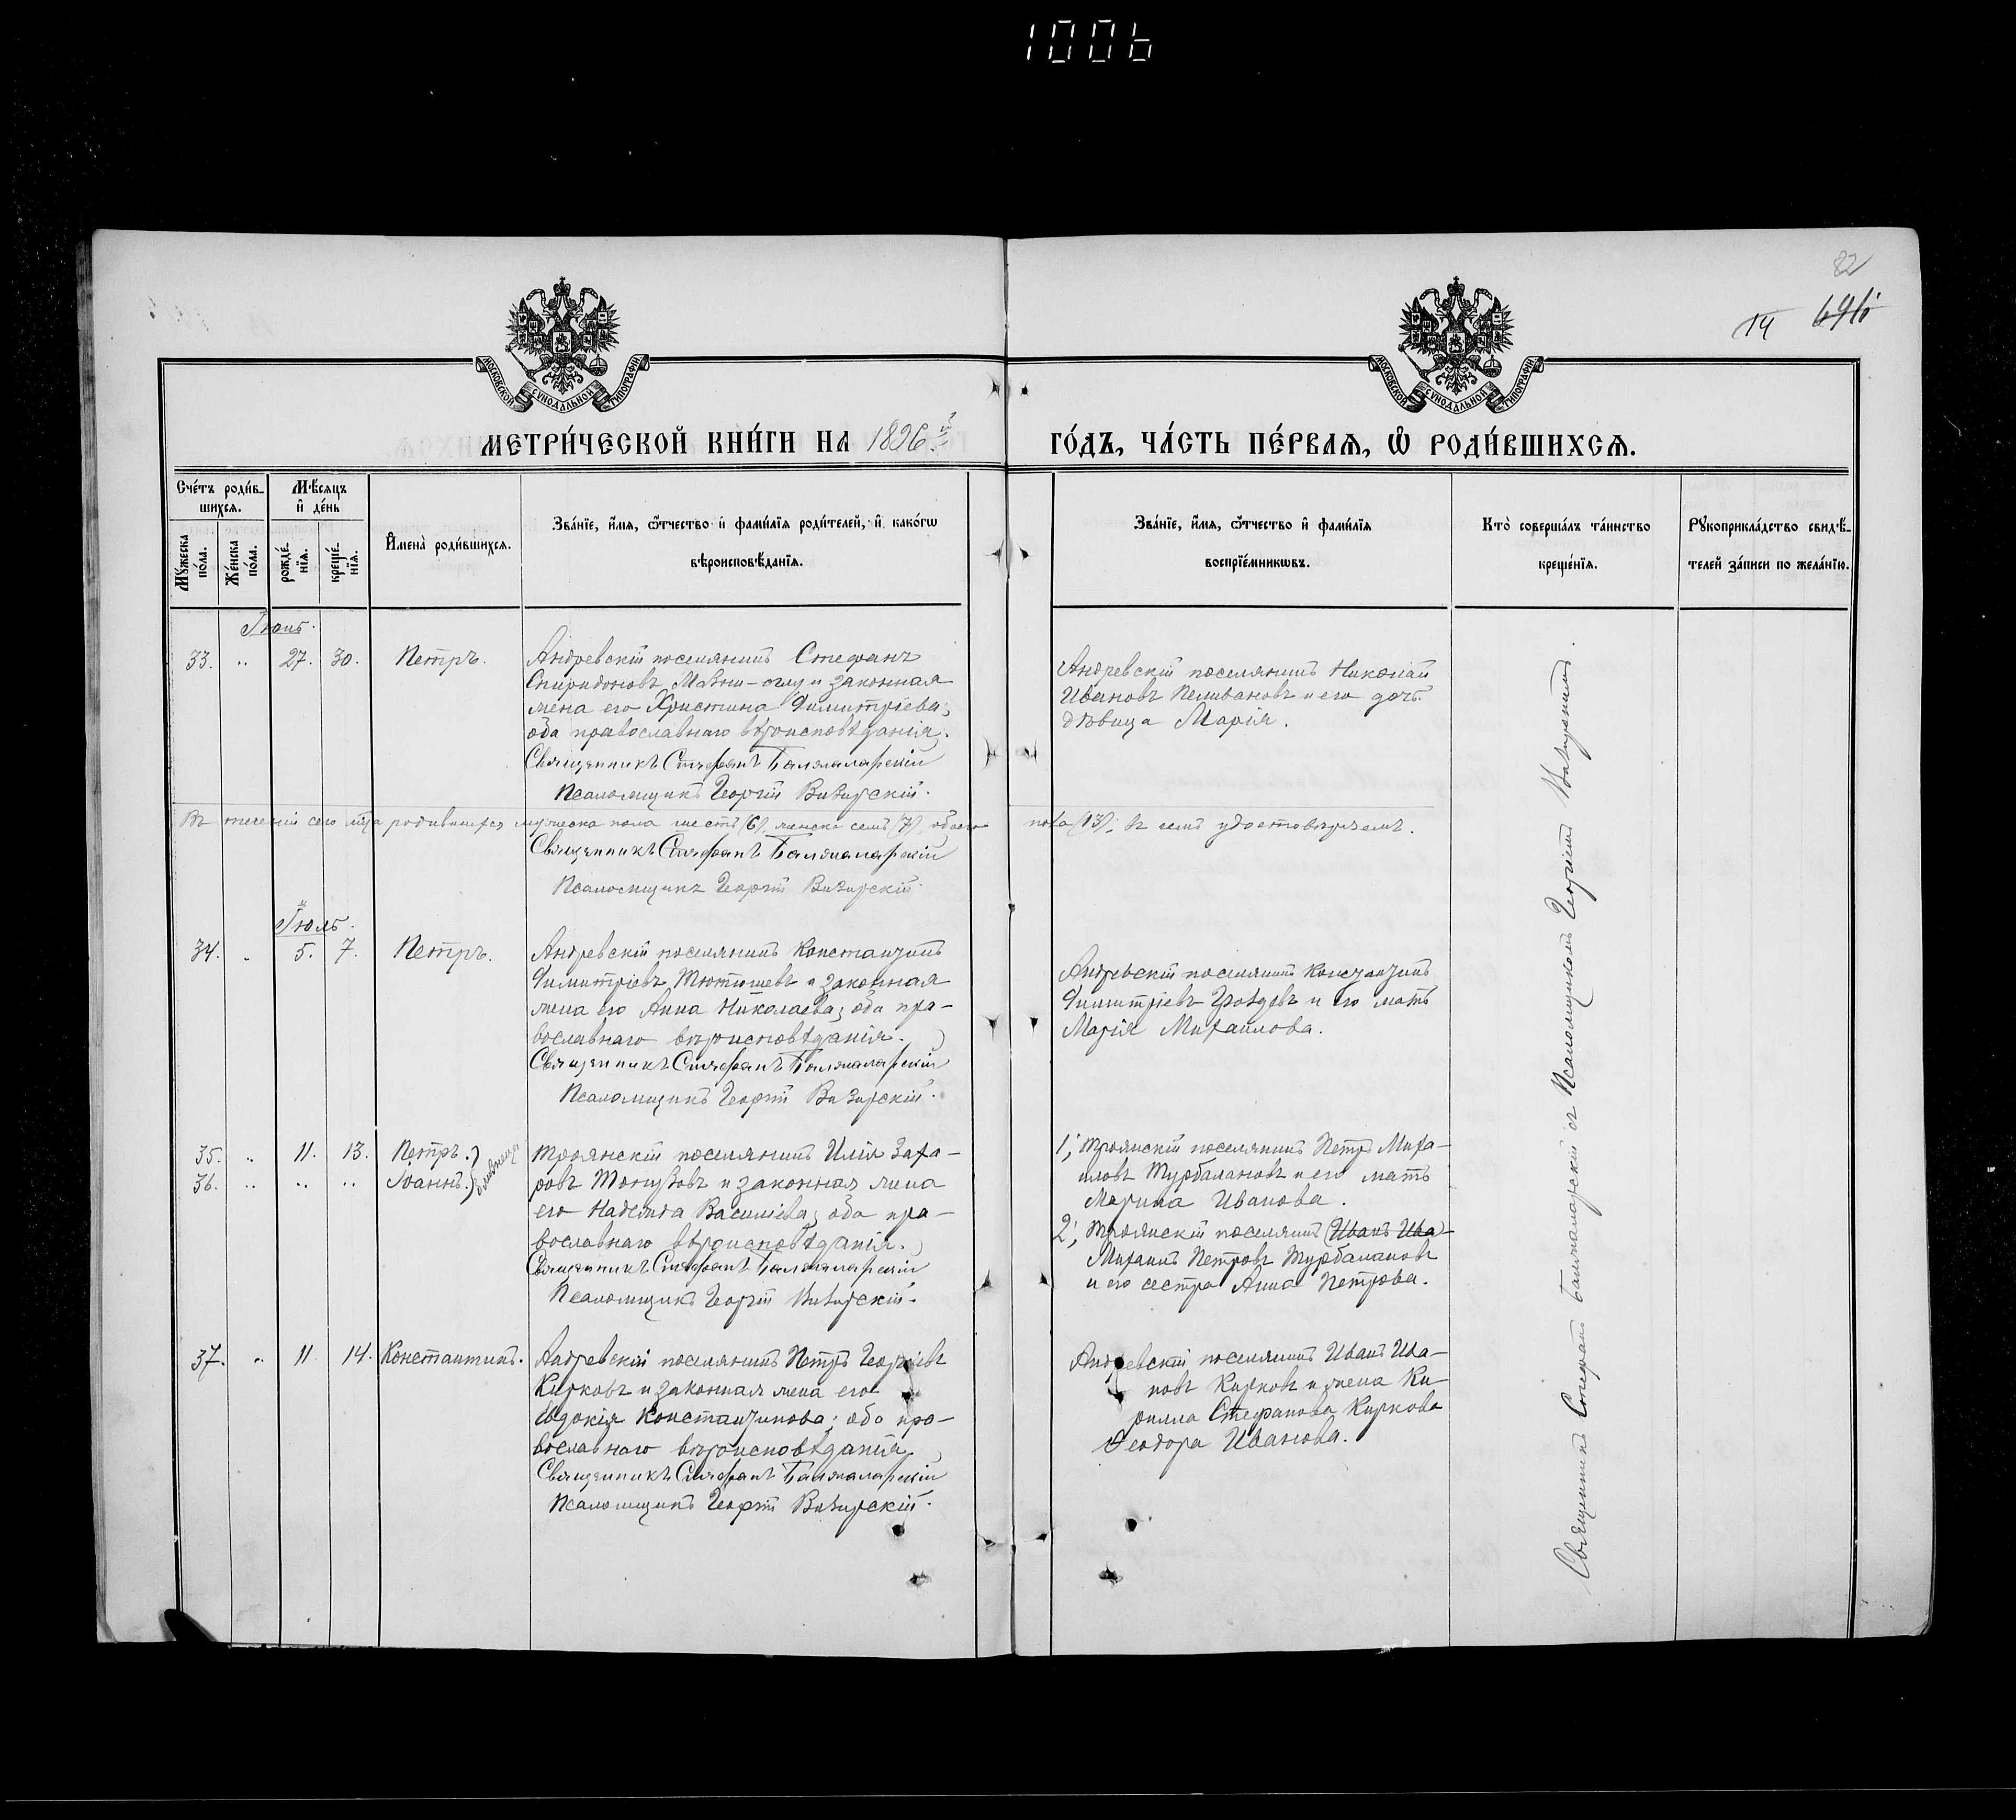 1006
82
14 696
МОСКОВСКОЙ СѴНОДАЛЬНОЙ ТИПОГРАФИИ
МОСКОВСКОЙ СѴНОДАЛЬНОЙ ТИПОГРАФИИ
МЕТРИ́ЧЕСКОЙ КНИ́ГИ НА 1896й
ГО́ДЪ, ЧА́СТЬ ПЕ́РВАѦ, Ѡ҆ РОДИ́ВШИХСѦ.
Сче́тъ роди́в-
шихсѧ.
Мꙋжеска по́ла.
Же́нска по́ла.
Мѣ́сѧцъ
и҆ де́нь
рожде́-нїѧ.
креще́-нїѧ.
И҆мена̀ роди́вшихсѧ.
Зва́нїе, и҆́мѧ, ѻ҆́тчество и҆ фами́лїѧ роди́телей, и҆ како́гѡ
вѣроисповѣ́данїѧ.
Зва́нїе, и҆́мѧ, ѻ҆́тчество и҆ фами́лїѧ
воспрїе́мникѡвъ.
Кто̀ соверша́лъ та́инство
креще́нїѧ.
Рꙋкоприкла́дство свидѣ́-
телей за́писи по жела́нїю.
Іюнь.
33. .. 27. 30. Петръ.
Андревскій поселянинъ Стефанъ
Спиридоновъ -оглу и законная
жена его Христина Димитріева;
оба православнаго вѣроисповѣданія.
Священникъ Стефанъ Балжаларскій
Псаломщикъ Георгій Визирскій.
Андревскій поселянинъ Николай
Ивановъ Пеливановъ и его дочь
дѣвица Марія.
Въ теченіи сего м-ца родившихся мужеска пола шесть (6), женска семь (7), обоего пола (13); въ семъ удостовѣряемъ.
Священникъ Стефанъ Балжаларскій
Псаломщикъ Георгій Визирскій.
Іюль.
34. . 5. 7. Петръ.
Андревскій поселянинъ Константинъ
Димитріевъ Тютюшевъ и законная
жена его Анна Николаева; оба пра-
вославнаго вѣроисповѣданія.
Священникъ Стефанъ Балжаларскій
Псаломщикъ Георгій Визирскій.
Андревскій поселянинъ Константинъ
Димитріевъ и его мать
Марія Михаилова.
35. .. 11. 13. Петръ.
36. .. .. .. Іоаннъ. близнецы
Троянскій поселянинъ Илія Заха-
ровъ и законная жена
его Надежда Василіева; оба пра-
вославнаго вѣроисповѣданія.
Священникъ Стефанъ Балжаларскій
Псаломщикъ Георгій Визирскій.
1; Троянскій поселянинъ Петръ Миха-
иловъ Турбалановъ и его мать
Марина Иванова.
2; Троянскій поселянинъ (Иванъ Ива-
Михаилъ Петровъ Турбалановъ
и его сестра Анна Петрова.
37. .. 11 14. Константинъ.
Андревскій поселянинъ Петръ Георгіевъ
Кирковъ и законная жена его
Евдокія Константинова; оба пра-
вославнаго вѣроисповѣданія.
Священникъ Стефанъ Балжаларскій
Псаломщикъ Георгій Визирскій.
Андревскій поселянинъ Иванъ Ива-
новъ Кирковъ и жена Ки-
рилла Стефанова Киркова
Ѳеодора Иванова.
Священникъ Стефанъ Балжаларскій съ Псаломщикомъ Георгіемъ Визирскимъ.